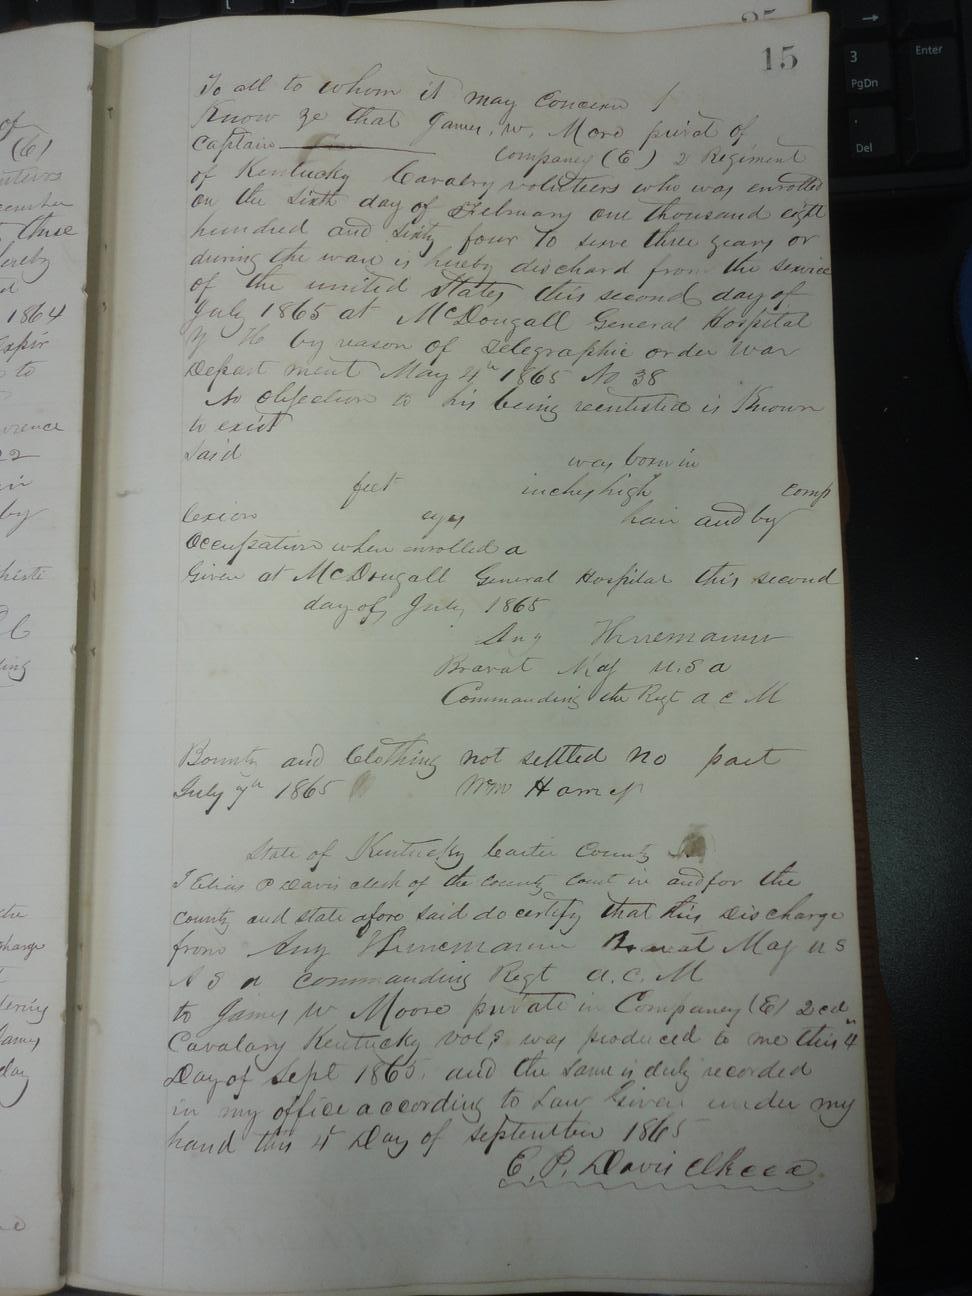 15
To all to whom it may Concern /
Know ye that James. W. More privat of
Captain companey (E) 2 Regiment
of Kentucky Cavalry volutteers who was enrolled
on the sixth day of February one thousand eight
hundred and sixty four to serve three years or
during the ware is hereby dischard from the service
of the united States this second day of
July 1865 at McDougall General Hospital
by reason of Telegraphic order War
Depart ment May 4th 1865 No 38
No objection to his being reenlisted is Known
to exist
Said was born in
feet inches high comp
lexion eyes hair and by
Occupation when enrolled a
Given at McDougall General Hospital this second
day of July 1865
Bravat Maj U.S a
Commanding the Regt a c M
Bounty and Clothing not settled no paet
July 7th 1865 Wm
State of Kentucky Carter County
I Elias P Davis clerk of the county court in and for the
county and state afore said do certify that this Discharge
from Bravat Maj U S
A S a commanding Regt a.c.M
to James W Moore private in Companey (E) 2cd
Cavalary Kentucky vols was produced to me this 4
Day of Sept 1865. and the same is duly recorded
in my office according to Law Given under my
hand this 4 Day of september 1865
E. P. Davis
of
(E)
cember
these
hereby
1864
Expir
to
22
by
ding
Games
day
→
3
PgDn
Enter
Del